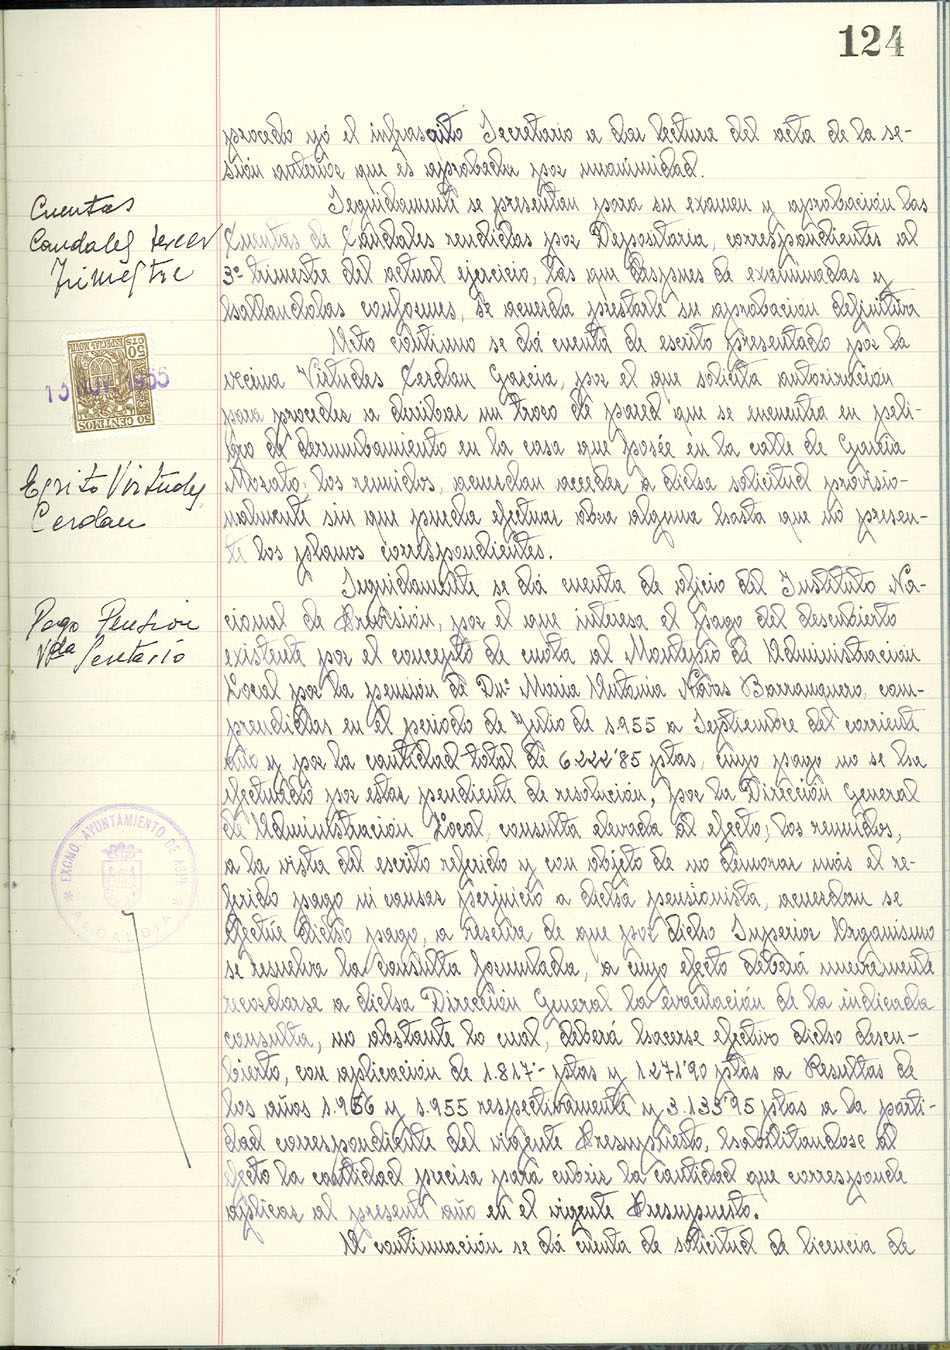 124
procedo yó el infrascrito Secretario a dar lectura del acta de la se-
sión anterior que es aprobada por unanimidad.
Cuentas
Caudales tercer
Trimestre
Seguidamente se presentan para su examen y aprobación las
Cuentas de Caudales rendidas por Depositaria, correspondientes al
3º trimestre del actual ejercicio, las que despues de examinadas y
hallandolas conformes, se acuerda prestarle su aprobación definitiva
50 CTS ESPECIAL MOVIL
50 CENTIMOS
Escrito Virtudes
Cerdan
Acto continuo se dá cuenta de escrito presentado por la
vecina Virtudes Cerdan Garcia, por el que solicita autorización
para proceder a derribar un trozo de pared que se encuentra en peli-
gro de derrumbamiento en la casa que posée en la calle de Garcia
Morato; los reunidos, acuerdan acceder a dicha solicitud provisio-
nalmente sin que pueda efectuar obra alguna hasta que no presen-
te los planos correspondientes.
Pago Pension
Vda Secretario
Seguidamente se dá cuenta de oficio del Instituto Na-
cional de Previsión, por el que interesa el pago del descubierto
existente por el concepto de cuota al Montepio de Administración
Local por la pensión de Dñª Maria Antonia Navas Barranquero, com-
prendidas en el periodo de Julio de 1.955 a Septiembre del corriente
año y por la cantidad total de 6.222'85 ptas, cuyo pago no se ha
efectuado por estar pendiente de resolución, por la Dirección General
de Administración Local, consulta elevada al efecto; los reunidos,
a la vista del escrito referido y con objeto de no demorar más el re-
ferido pago ni causar perjuicio a dicha pensionista, acuerdan se
efectúe dicho pago, a reserva de que por dicho Superior Organismo
se resuelva la consulta formulada, a cuyo efecto deberá nuevamente
recordarse a dicha Dirección General la evacuación de la indicada
consulta, no obstante lo cual, deberá hacerse efectivo dicho descu-
bierto, con aplicación de 1.817'- ptas y 1.271'90 ptas a Resultas de
los años 1.956 y 1.955 respectivamente y 3.133'95 ptas a la parti-
dad correspondiente del vigente Presupuesto, habilitandose al
efecto la cantidad precisa para cubrir la cantidad que corresponde
aplicar al presente año en el vigente Presupuesto.
EXCMO. AYUNTAMIENTO DE
ALCALDIA
A continuación se dá cuenta de solicitud de licencia de